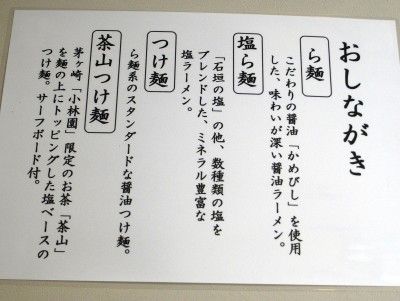 おしながき
ら麺
こだわりの醤油「かめびし」を使用
した、味わいが深い醤油ラーメン。
塩ら麺
「石垣の塩」の他、数種類の塩を
ブレンドした、ミネラル豊富な
塩ラーメン。
つけ麺
ら麺系のスタンダードな醤油つけ麺。
茶山つけ麺
茅ヶ崎「小林園」限定のお茶「茶山」
を麺の上にトッピングした塩ベースの
つけ麺。サーフボード付。